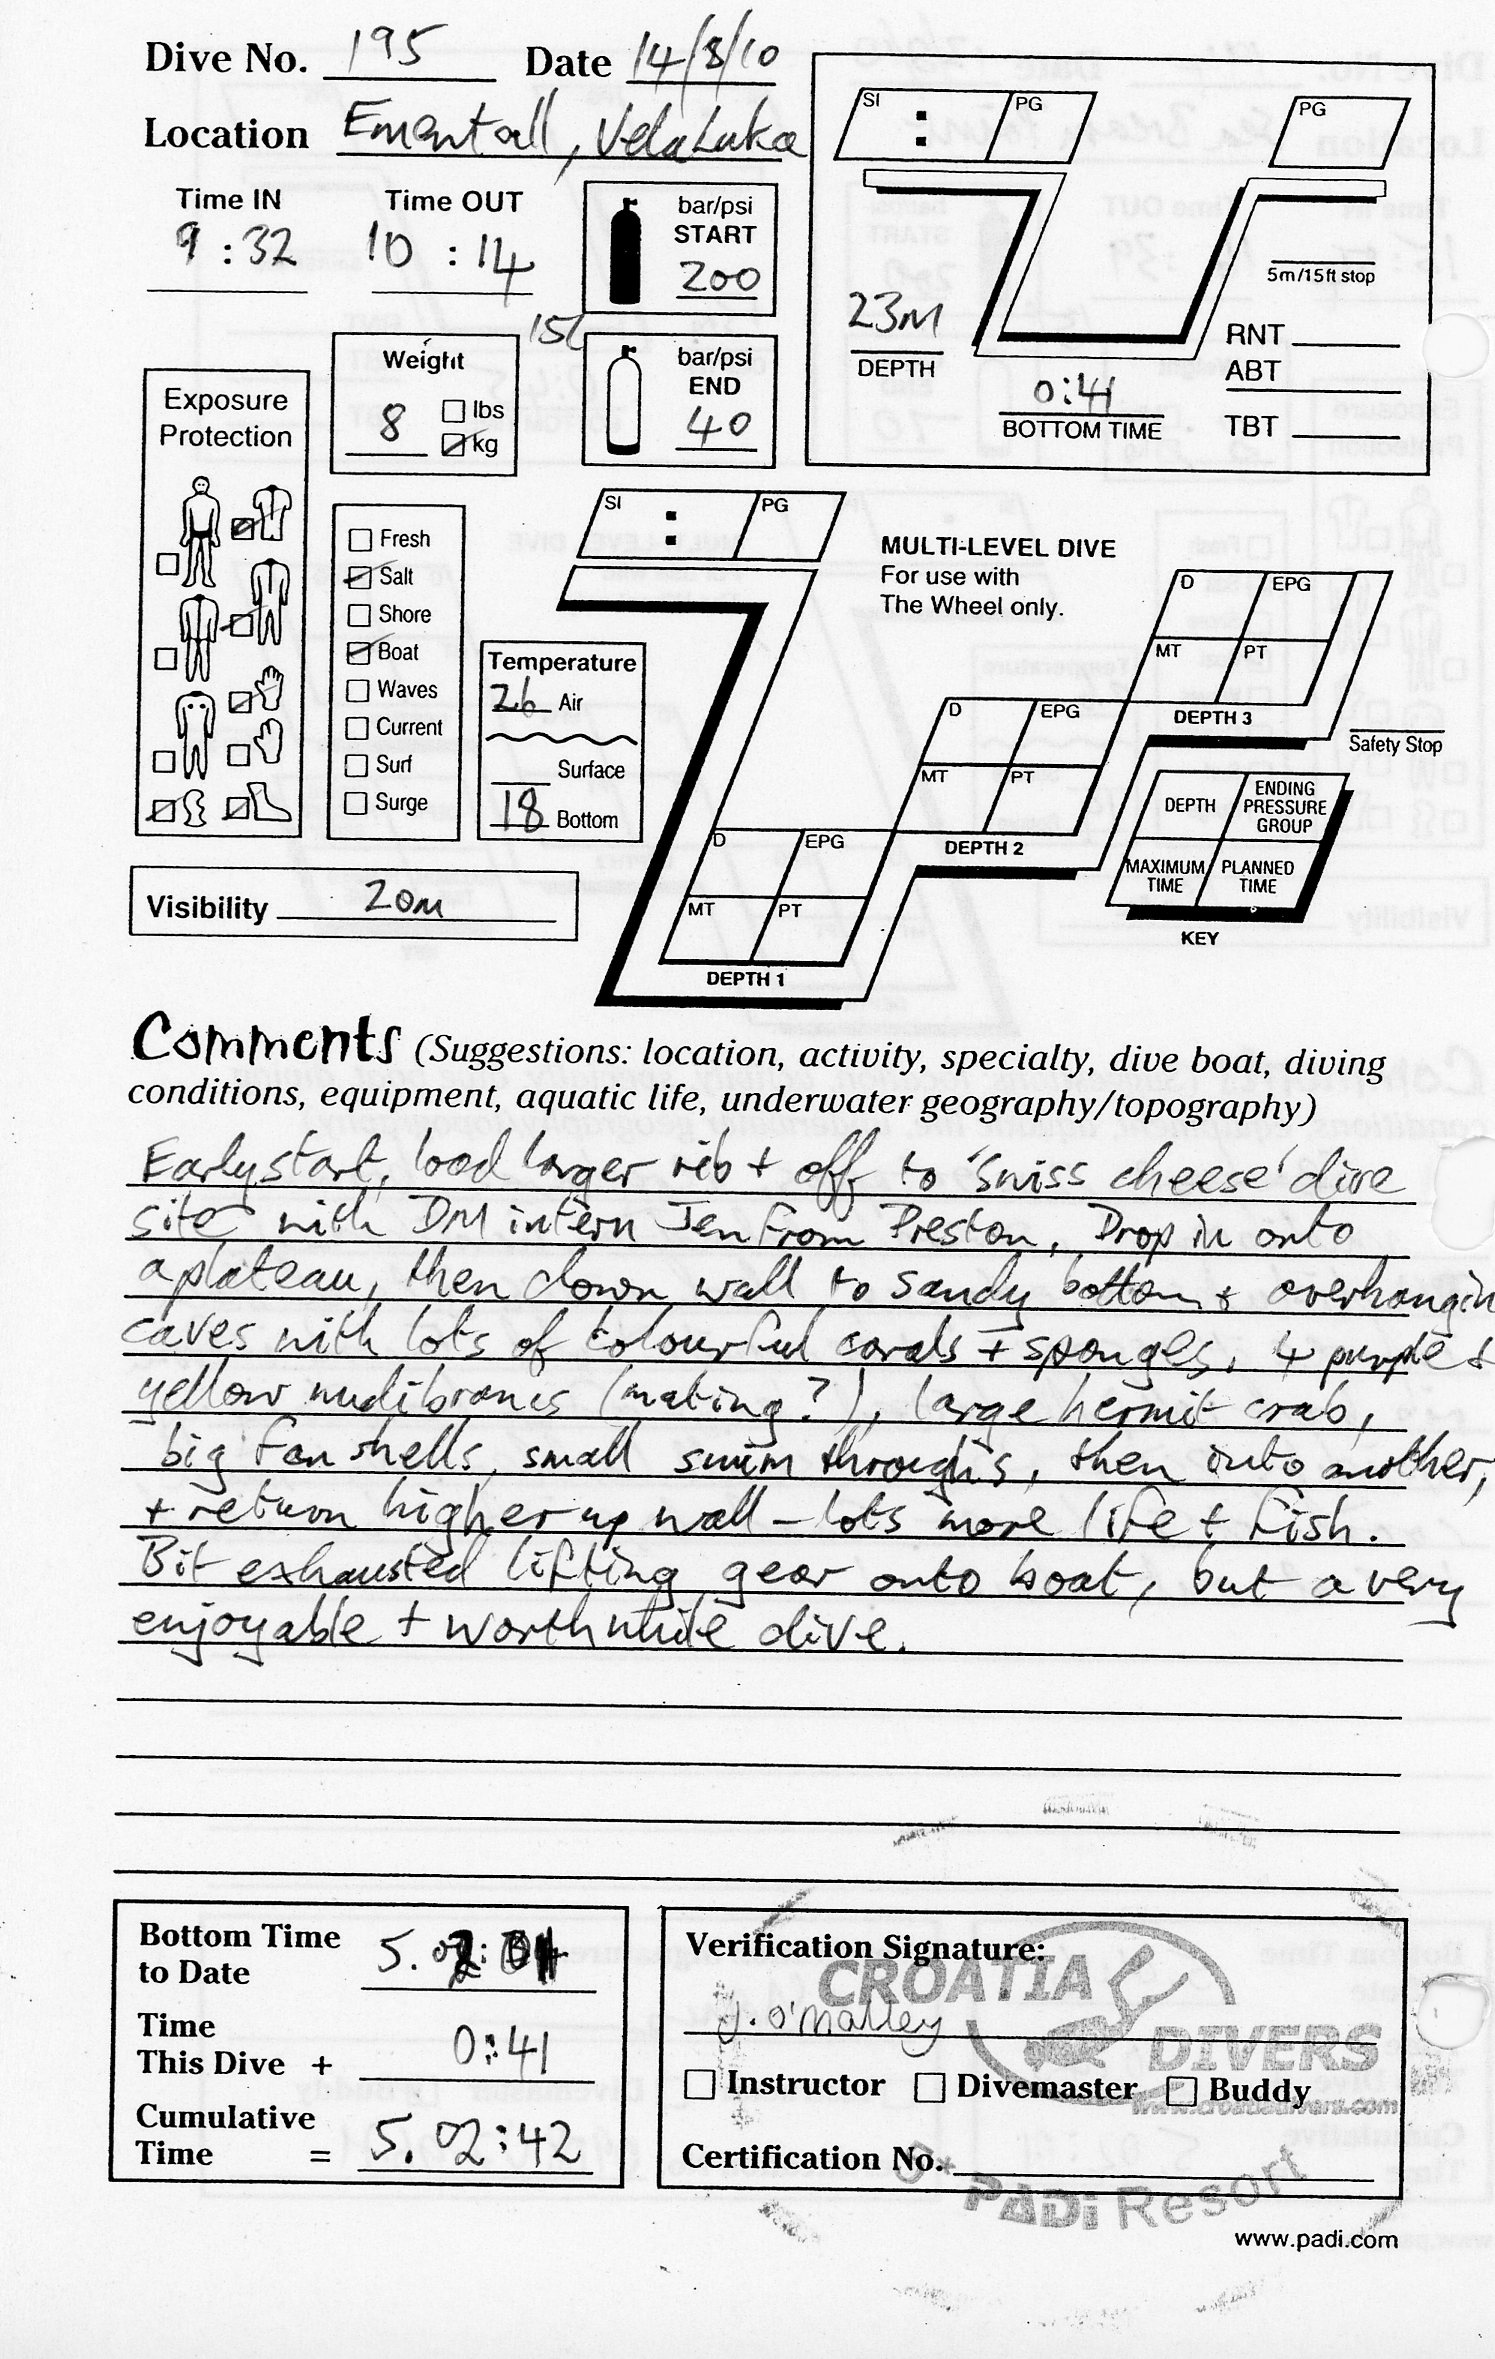 Dive No. 195 Date 14/8/10
Location Ementall, Vela Luka
SI : PG
PG
Time IN Time OUT
9:32 10:14
bar/psi
START
200
5m/15ft stop
23M
DEPTH
0:41
BOTTOM TIME
RNT
ABT
TBT
15L
Weight
8 lbs
kg
bar/psi
END
40
Exposure
Protection
Fresh
Salt
Shore
Boat
Waves
Current
Surf
Surge
SI : PG
MULTI-LEVEL DIVE
For use with
The Wheel only.
Temperature
26 Air
Surface
18 Bottom
D EPG
MT PT
DEPTH 3
Safety Stop
D EPG
MT PT
DEPTH 2
D EPG
MT PT
DEPTH 1
DEPTH
ENDING
PRESSURE
GROUP
MAXIMUM
TIME
PLANNED
TIME
KEY
Visibility 20m
Comments (Suggestions: location, activity, specialty, dive boat, diving
conditions, equipment, aquatic life, underwater geography/topography)
Early start, load larger rib + off to 'swiss cheese' dive
site with DM intern Jen from Preston. Drop in onto
a plateau, then down wall to sandy bottom + overhangin
caves with lots of colourful corals + sponges, 4 purple +
yellow nudibrancs (mating?), large hermit crab,
big fan shells, small swim throughs, then into another,
+ return higher up wall - lots more life + fish.
Bit exhausted lifting gear onto boat, but a very
enjoyable + worthwhile dive.
Bottom Time
to Date 5.
Time
This Dive + 0:41
Cumulative
Time = 5.02:42
Verification Signature:
J. O'Malley
Instructor Divemaster Buddy
Certification No.
CROATIA
DIVERS
www.croatiadivers.com
5* PADI Resort
www.padi.com